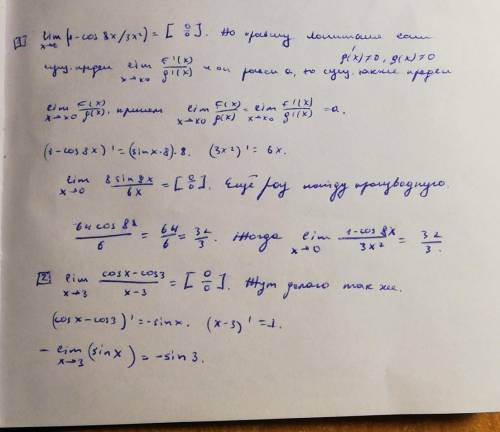 1) lim x→0 (1-cos 8x/3x²) = [0/0]. По правилу Лопиталя если
g'(x)≠0, g(x)≠0
сущ. предел lim x→x0 F'(x)/g'(x) и он равен a, то сущ. также предел
lim x→x0 F(x)/g(x), причем lim x→x0 F(x)/g(x) = lim x→x0 F'(x)/g'(x) = a.
(1-cos 8x)' = (sin x·8)·8. (3x²)' = 6x.
lim x→0 8 sin 8x/6x = [0/0]. Ещё раз найду производную.
64 cos 8x/6 = 64/6 = 32/3. Тогда lim x→0 1-cos 8x/3x² = 32/3.
2) lim x→3 cos x - cos 3/x-3 = [0/0]. Тут делаю так же.
(cos x - cos 3)' = -sin x. (x-3)' = 1.
- lim x→3 (sin x) = -sin 3.